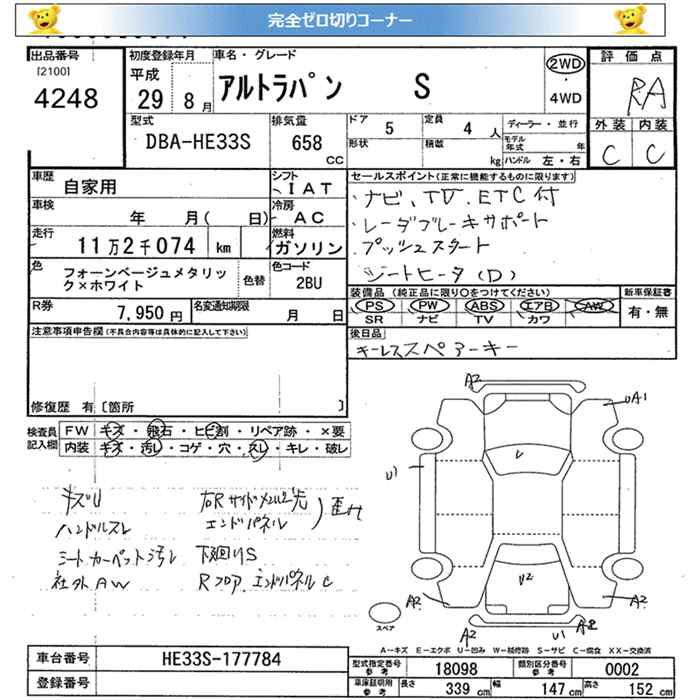 完全ゼロ切りコーナー
出品番号
[2100]
4248
初度登録年月
平成
29年 8月
車名・グレード
アルトラパン S
2WD
4WD
評価点
RA
型式
DBA-HE33S
排気量
658
CC
ドア 5
形状
定員 4 人
積載 kg
ディーラー・並行
モデル年式 年
ハンドル 左・右
外装 内装
C C
車歴 自家用
シフト
IAT
車検 年 月( 日)
冷房
AC
走行 11万2千074 km
燃料
ガソリン
色 フォーンベージュメタリック×ホワイト
色替
色コード
2BU
R券 7,950円
名変通知期限 月 日
セールスポイント(正常に機能するものに限ります)
・ナビ、TV、ETC付
・レーダブレーキサポート
・プッシュスタート
・シートヒータ(D)
装備品(純正品に限り○をつけてください)
PS PW ABS エアB AW
SR ナビ TV カワ
新車保証書
有・無
注意事項申告欄(不具合内容等は具体的に記入して下さい)
修復歴 有〔箇所 〕
後日品
キーレススペアーキー
検査員記入欄
FW キズ・飛石・ヒビ割・リペア跡・×要
内装 キズ・汚レ・コゲ・穴・スレ・キレ・破レ
キズU
ハンドルスレ
シートカーペット汚レ
社外AW
右Rサイドメンバー先
エンドパネル
歪れ
下廻りS
Rフロア エンドパネルC
A2
UA1
U
U1
U2
A2
A2
A2
U1
A2
スペア
A-キズ E-エクボ U-凹み W-補修跡 S-サビ C-腐食 XX-交換済
車台番号 HE33S-177784
登録番号
型式指定番号
参考
18098
類別区分番号
参考
0002
車庫証明用
参考
長さ 339cm
幅 147cm
高さ 152cm